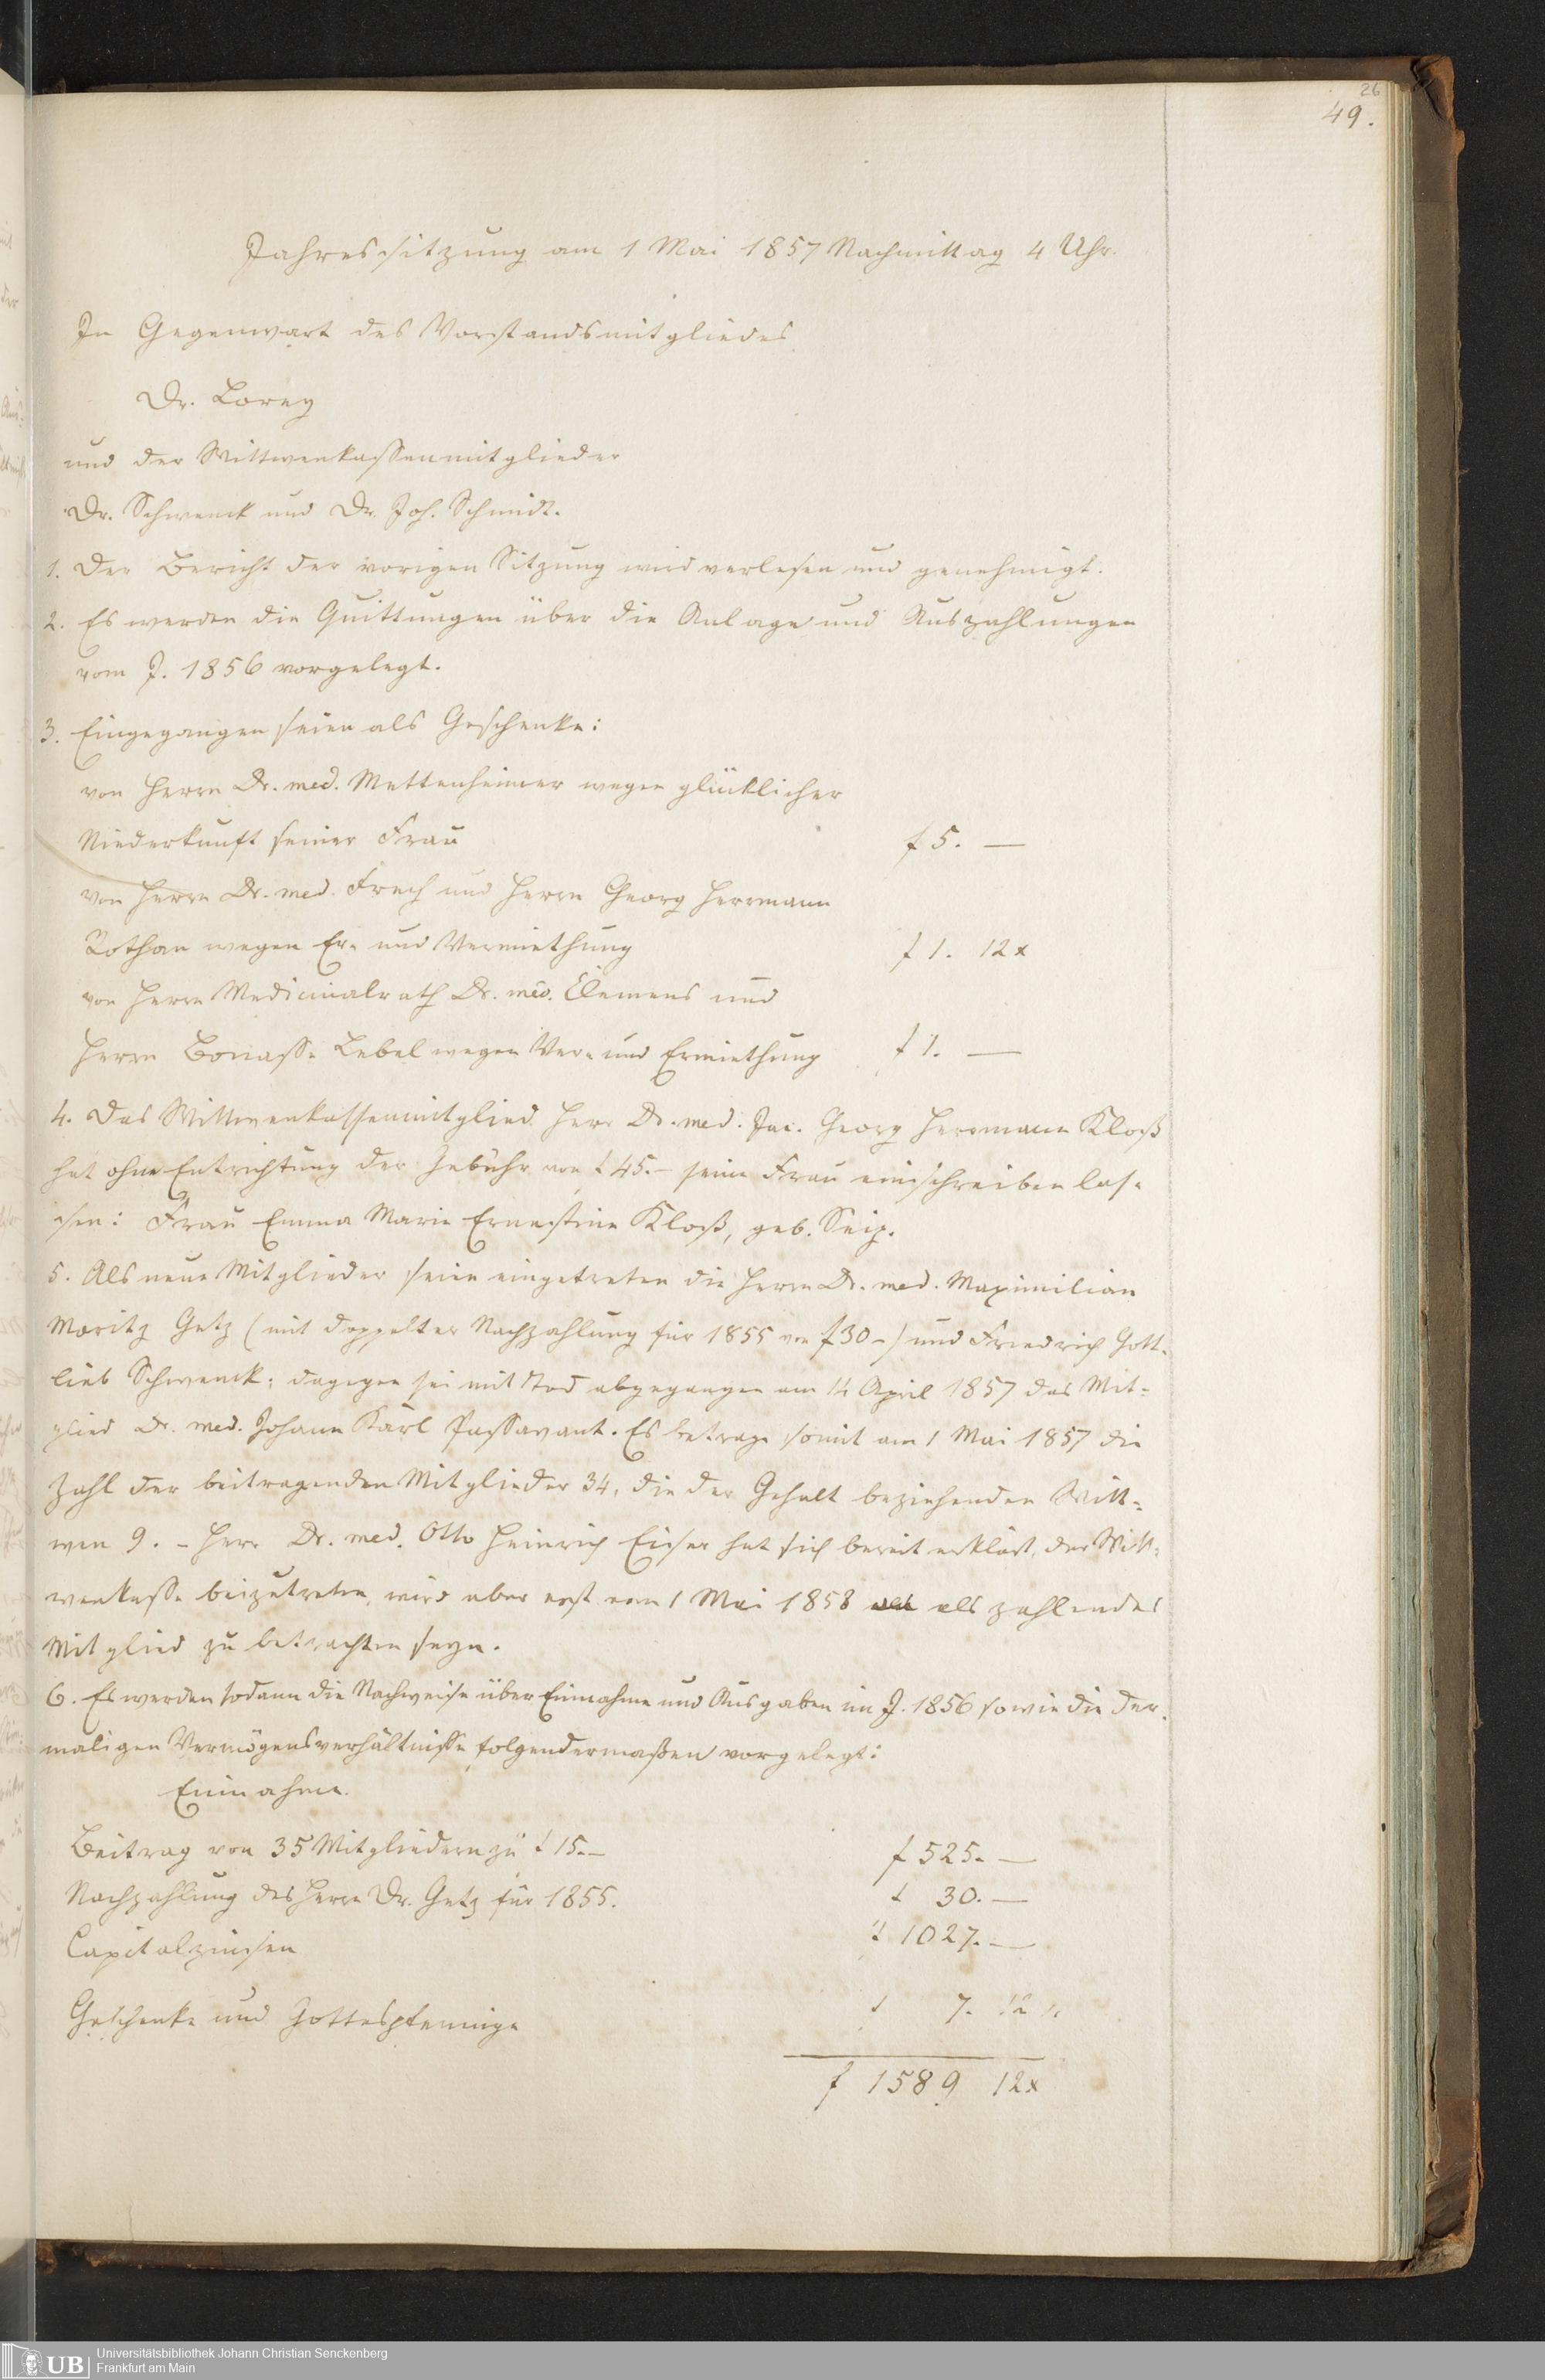 26
49.
Jahressitzung am 1 Mai 1857 Nachmittag 4 Uhr.
In Gegenwart des Vorstandsmitgliedes
Dr. Lorey
und der Wittwenkassenmitglieder
Dr. Schwenck und Dr. Joh. Schmidt.
1. Der Bericht der vorigen Sitzung wird verlesen und genehmigt.
2. Es werden die Quittungen über die Anlage und Auszahlungen
vom J. 1856 vorgelegt.
3. Eingegangen seien als Geschenke:
von Herrn Dr. med. Mettenheimer wegen glücklicher
Niederkunft seiner Frau f 5. —
von Herrn Dr. med. Fresh und Herrn Georg Herrmann
Rothan wegen Er- und Vermiethung f 1. 12 x
von Herrn Medicinalrath Dr. med. Clemens und
Herrn Bonasse Lebel wegen Ver- und Ermiethung f 1. —
4. Das Wittwenkassenmitglied Herr Dr. med. Jac. Georg Herrmann Kloß
hat ohne Entrichtung der Gebühr von f 45.— seine Frau einschreiben las-
sen: Frau Emma Marie Ernestine Kloß, geb. Seip.
5. Als neue Mitglieder seien eingetreten die Herrn Dr. med. Maximilian
Moritz Getz (mit doppelter Nachzahlung für 1855 von f 30 –) und Friedrich Gott-
lieb Schwenck; dagegen sei mit Tod abgegangen am 14 April 1857 das Mit-
glied Dr. med. Johann Karl Passavant. Es betrage somit am 1 Mai 1857 die
Zahl der beitragenden Mitglieder 34, die der Gehalt beziehenden Witt-
wen 9. – Herr Dr. med. Otto Heinrich Eiser hat sich bereit erklärt, der Witt-
wenkasse beizutreten, wird aber erst vom 1 Mai 1858 als zahlendes
Mitglied zu betrachten seyn.
6. Es werden sodann die Nachweise über Einnahme und Ausgaben im J. 1856 sowie die der-
maligen Vermögensverhältnisse folgendermaßen vorgelegt:
Einnahme.
Beitrag von 35 Mitgliedern zu f 15.— f 525. —
Nachzahlung des Herrn Dr. Getz für 1855. f 30. —
Capitalzinsen f 1027. —
Geschenke und Gottespfennige f 7. 12 "
f 1589 12 x
UB
Universitätsbibliothek Johann Christian Senckenberg
Frankfurt am Main